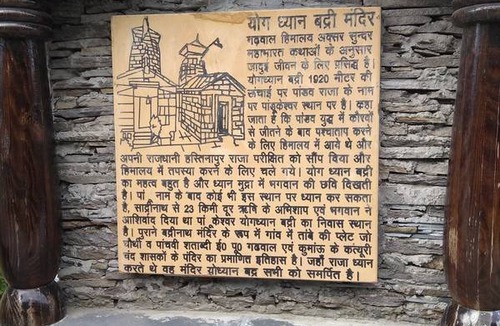 योग ध्यान बद्री मंदिर
गढ़वाल हिमालय अक्सर सुन्दर
महाभारत कथाओं के अनुसार
जादुई जीवन के लिए प्रसिद्ध है।
योगध्यान बद्री 1920 मीटर की
ऊंचाई पर पांडव राजा के नाम
पर पांडुकेश्वर स्थान पर है। कहा
जाता है कि पांडव युद्ध में कौरवों
से जीतने के बाद पश्चाताप करने
के लिए हिमालय में आये थे और
अपनी राजधानी हस्तिनापुर राजा परीक्षित को सौंप दिया और
हिमालय में तपस्या करने के लिए चले गये। योग ध्यान बद्री
का महत्व बहुत है और ध्यान मुद्रा में भगवान की छवि दिखती
है। नाम के बाद कोई भी इस स्थान पर ध्यान कर सकता
है, से 23 किमी दूर ऋषि के अभिशाप एवं भगवान ने
आशिर्वाद दिया था केश्वर योगध्यान बद्री का निवास स्थान
है। पुराने बद्रीनाथ मंदिर के रूप में गांव में तांबे की प्लेट जो
चौथी व पांचवी शताब्दी ई0 पू0 गढवाल एवं कुमाऊ के कत्यूरी
चंद शासकों के का प्रमाणित इतिहास है। जहाँ राजा ध्यान
करते थे वह मंदिर योध्यान बद्र सभी को समर्पित है।